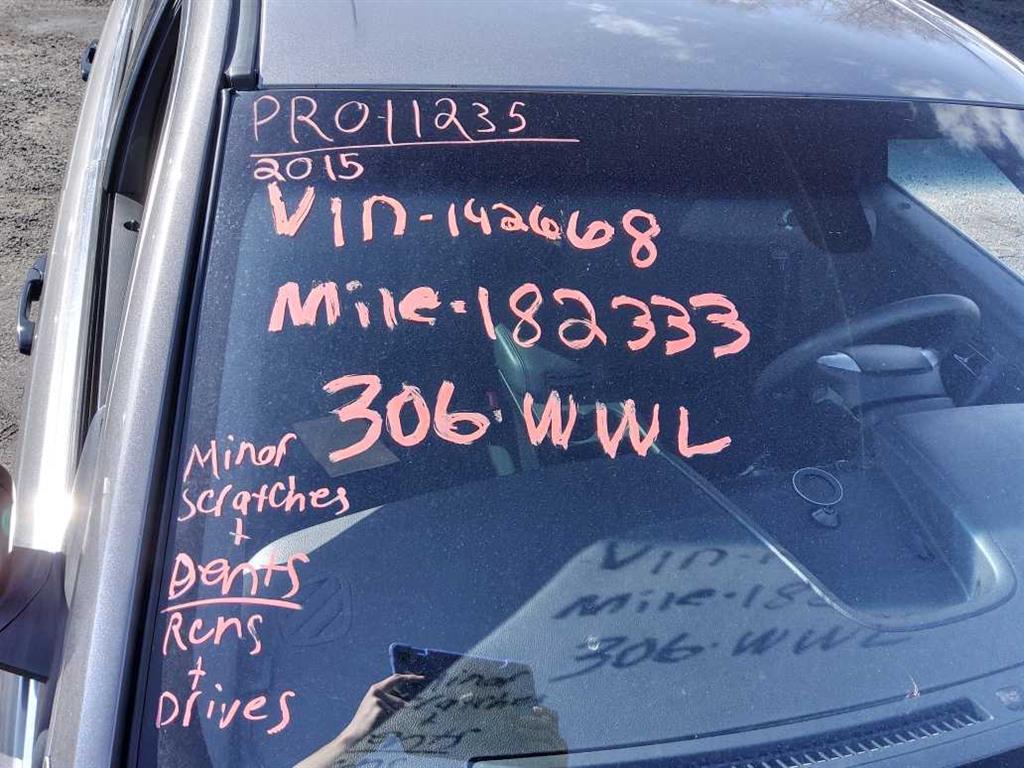 PRO-11235
2015
VIn-142668
Mile-182333
306-WWL
Minor
scratches
+
Dents
Rcns
+
Drives